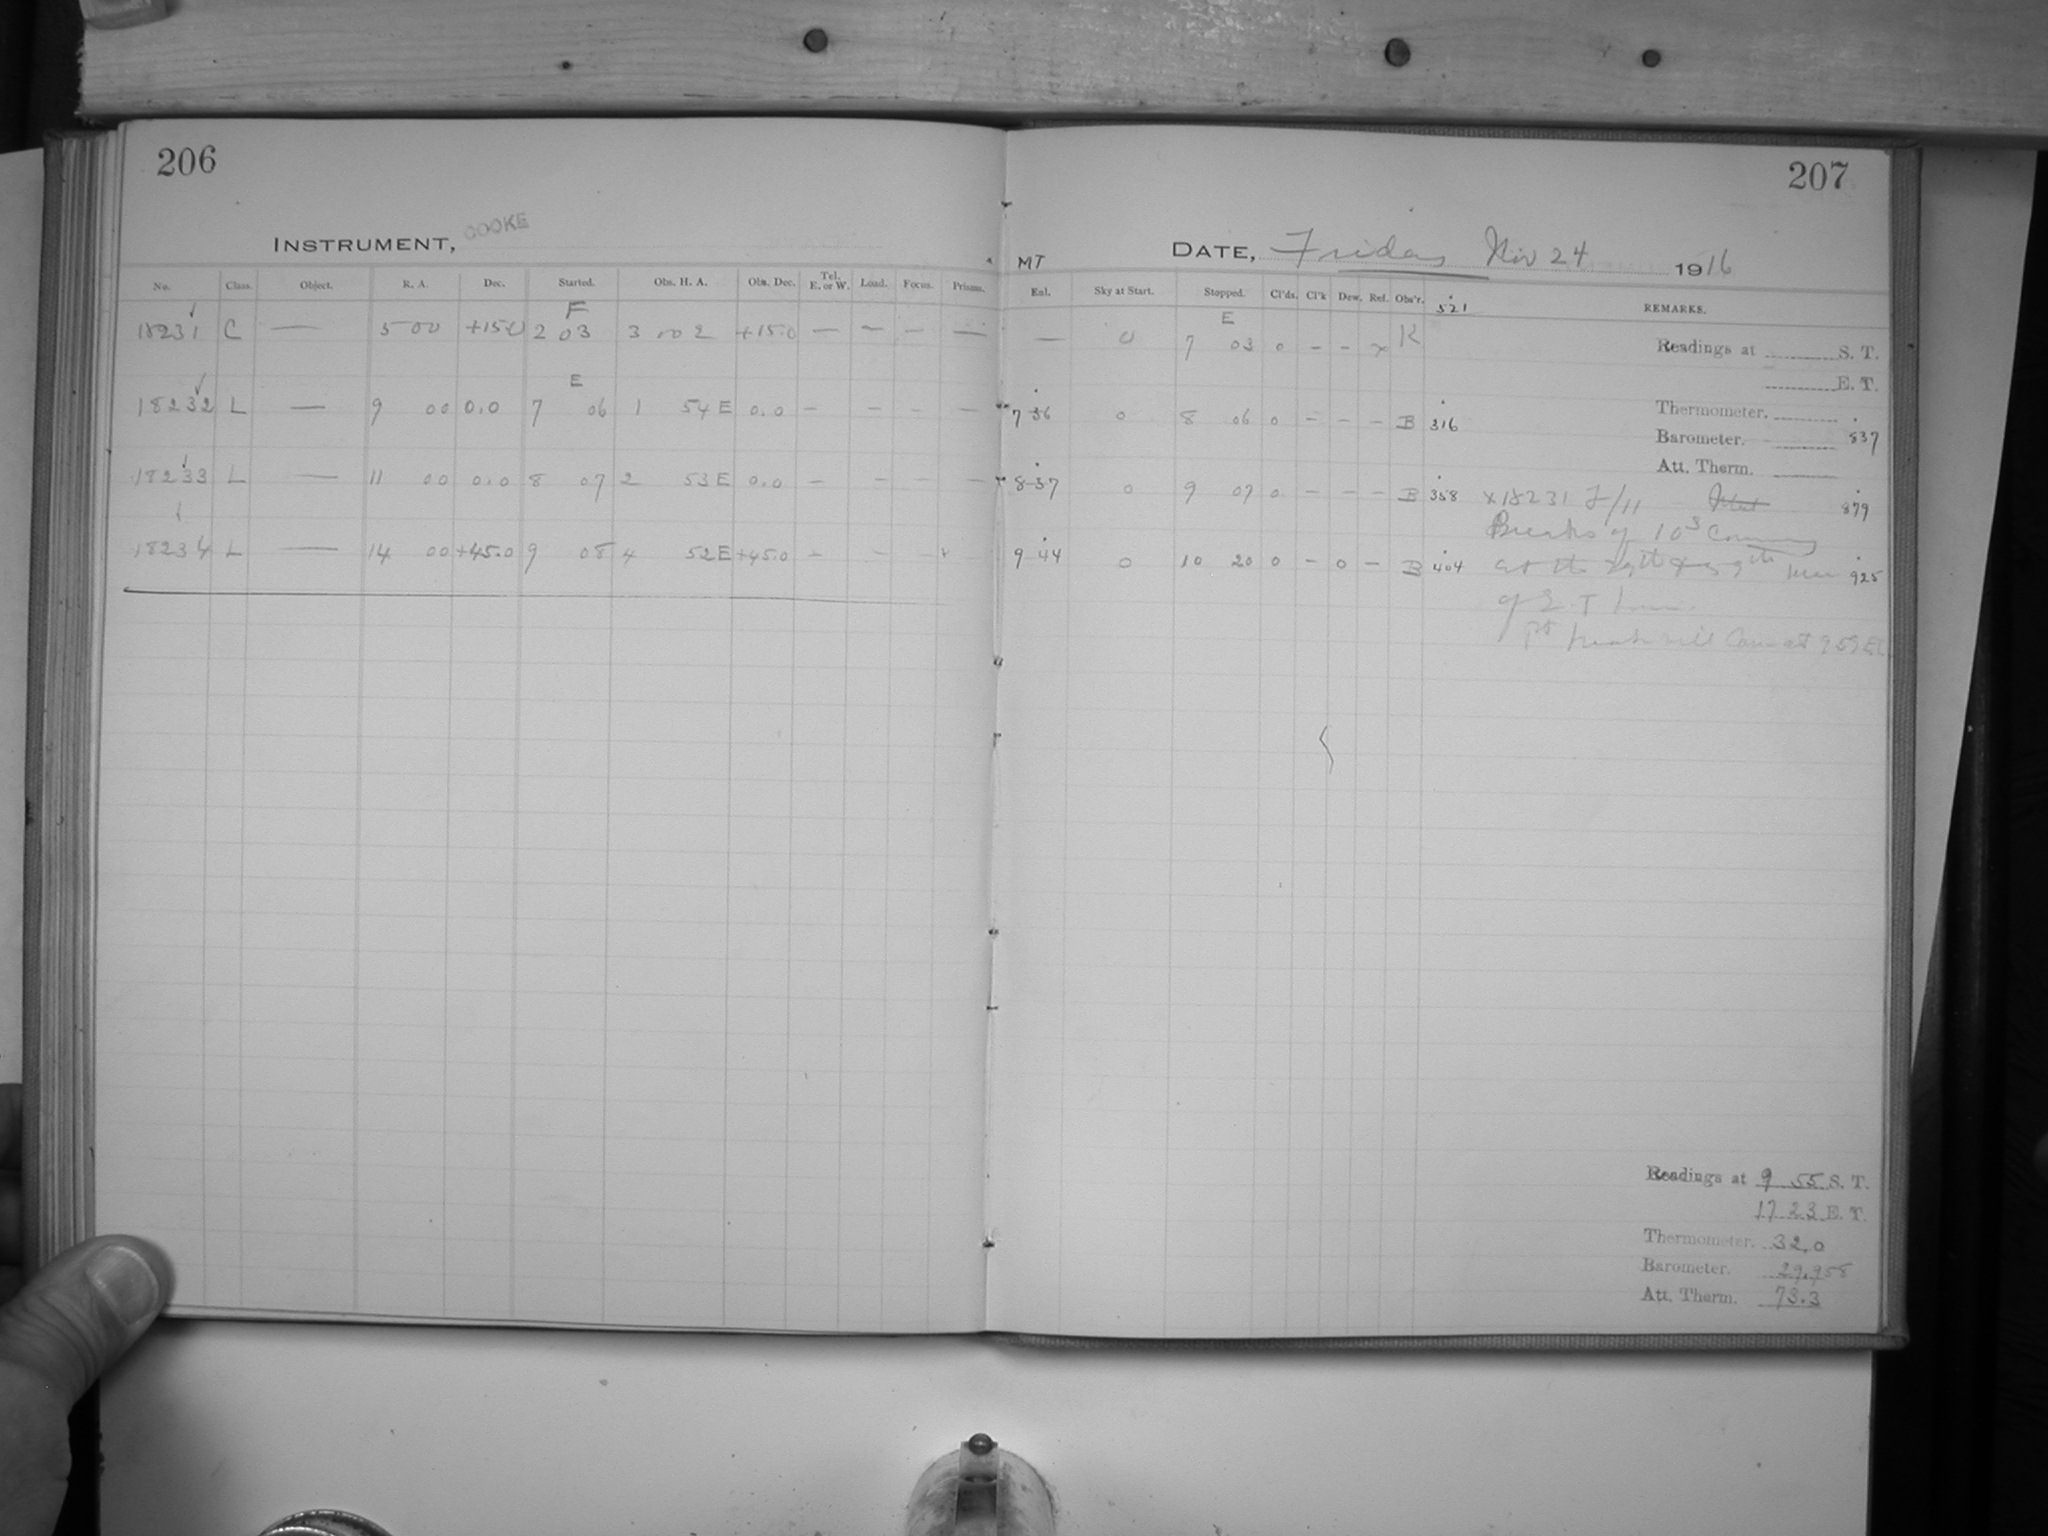 206
INSTRUMENT, COOKE
No. Class. Object. R. A. Dec. Started. Obs. H. A. Obs. Dec. Tel. E. or W. Load. Focus. Prisms.
18231 C — 5 00 +15.0 2 03 3 00 E +15.0 — — — —
E
18232 L — 9 00 0.0 7 06 1 54 E 0.0 — — — —
18233 L — 11 00 0.0 8 07 2 53 E 0.0 — — — —
18234 L — 14 00 +45.0 9 08 4 52 E +45.0 — — —
207
DATE, Friday Nov 24 1916
MT
Enl. Sky at Start. Stopped. Cl'ds. Cl'k Dew. Ref. Obs'r. 521 REMARKS.
E
— 0 7 03 0 — — x K
7 36 0 8 06 0 — — — B 316
8 37 0 9 07 0 — — — B 358
9 44 0 10 20 0 — 0 — B 404
Readings at S. T.
E. T.
Thermometer.
Barometer. 837
Att. Therm.
x 18231 F/11 879
Breaks of 10s
at the 925
of E. T.
Readings at 9 55 S. T.
17 23 E. T.
Thermometer. 32.0
Barometer. 29.958
Att. Therm. 73.3